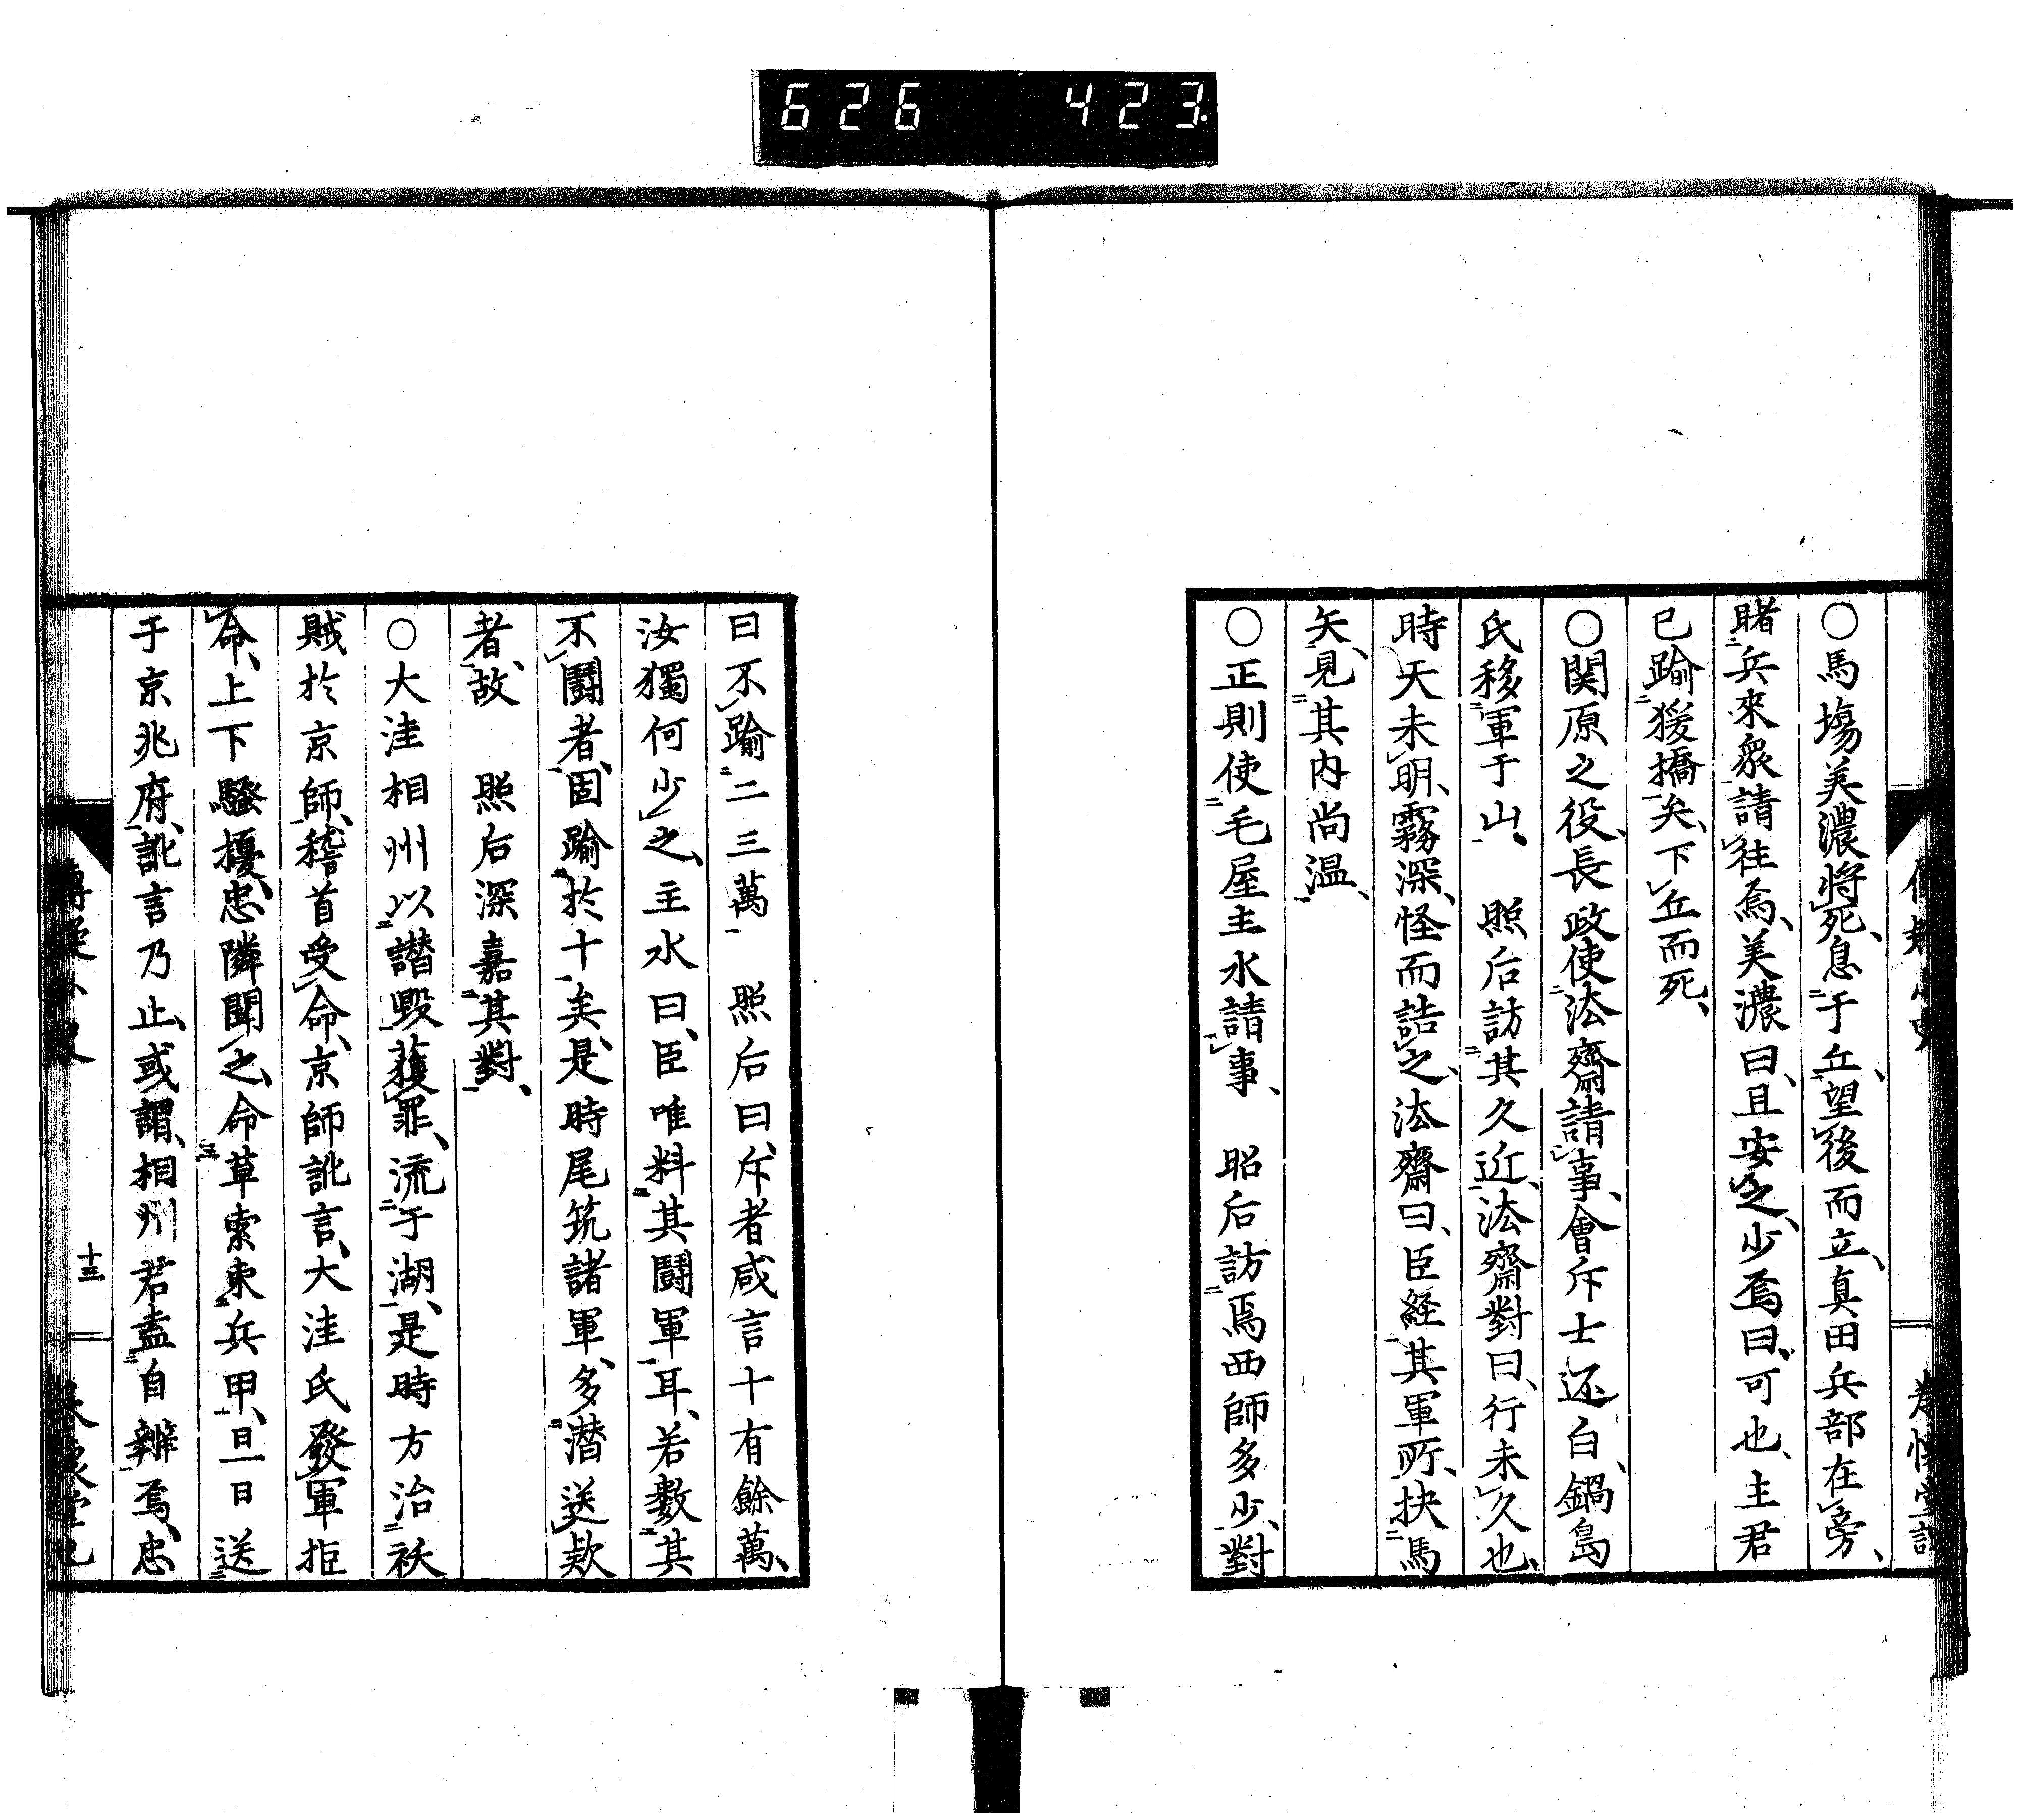 626 423
○馬塲美濃將死、息于丘、望後而立、真田兵部在旁、
睹兵來衆、請往焉、美濃曰、且安之、少焉曰、可也、主君
已踰猨橋矣、下丘而死、
○関原之役、長政使泫齋請事、會斥士还白、鍋島
氏移軍于山、 照后訪其久近、泫齋對曰、行未久也、
時天未明、霧深、怪而詰之、泫齋曰、臣経其軍所、抉馬
矢、見其内尚温、
○正則使毛屋主水請事、 昭后訪焉西師多少、對
曰不踰二三萬 照后曰、斥者咸言十有餘萬、
汝獨何少之、主水曰、臣唯料其鬪軍耳、若數其
不鬪者、固踰於十矣、是時尾筑諸軍、多潜送欵
者、故 照后深嘉其對、
○大洼相州以譖毀獲罪、流于湖、是時方治祅
賊於京師、稽首受命、京師訛言、大洼氏發軍拒
命、上下騷擾、忠隣聞之、命草索束兵甲、旦日送
于京兆府、訛言乃止、或謂、相州若盍自辨焉、忠
十三